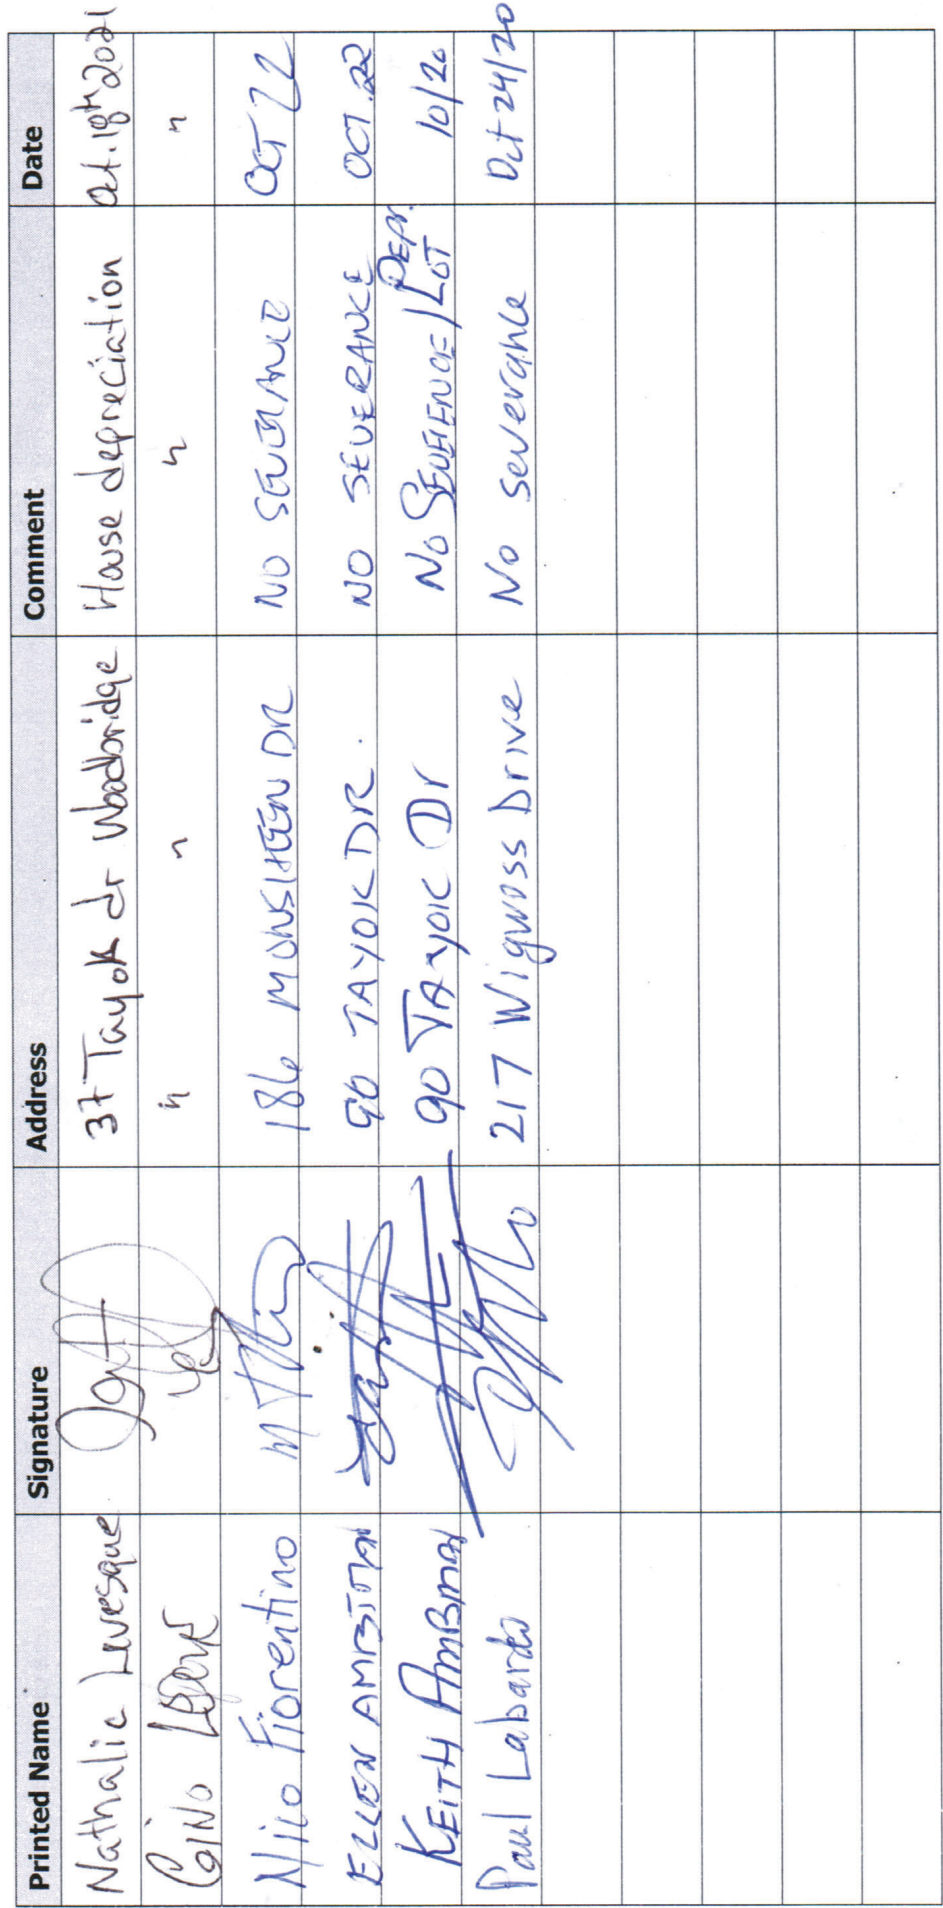 Printed Name Signature Address Comment Date
Nathalie Levesque 37 Tayok dr Woodbridge House depreciation Oct. 18th 2021
GINO " " " "
Nico Fiorentino 186 MONSHEEN DR NO SEVERANCE OCT 22
ELLEN 90 TAYOK DR. NO SEVERANCE OCT. 22
KEITH 90 TAYOK Dr No / DEPR. LOT 10/20
Paul Labarda 217 Wigwoss Drive No severance Oct 24/20